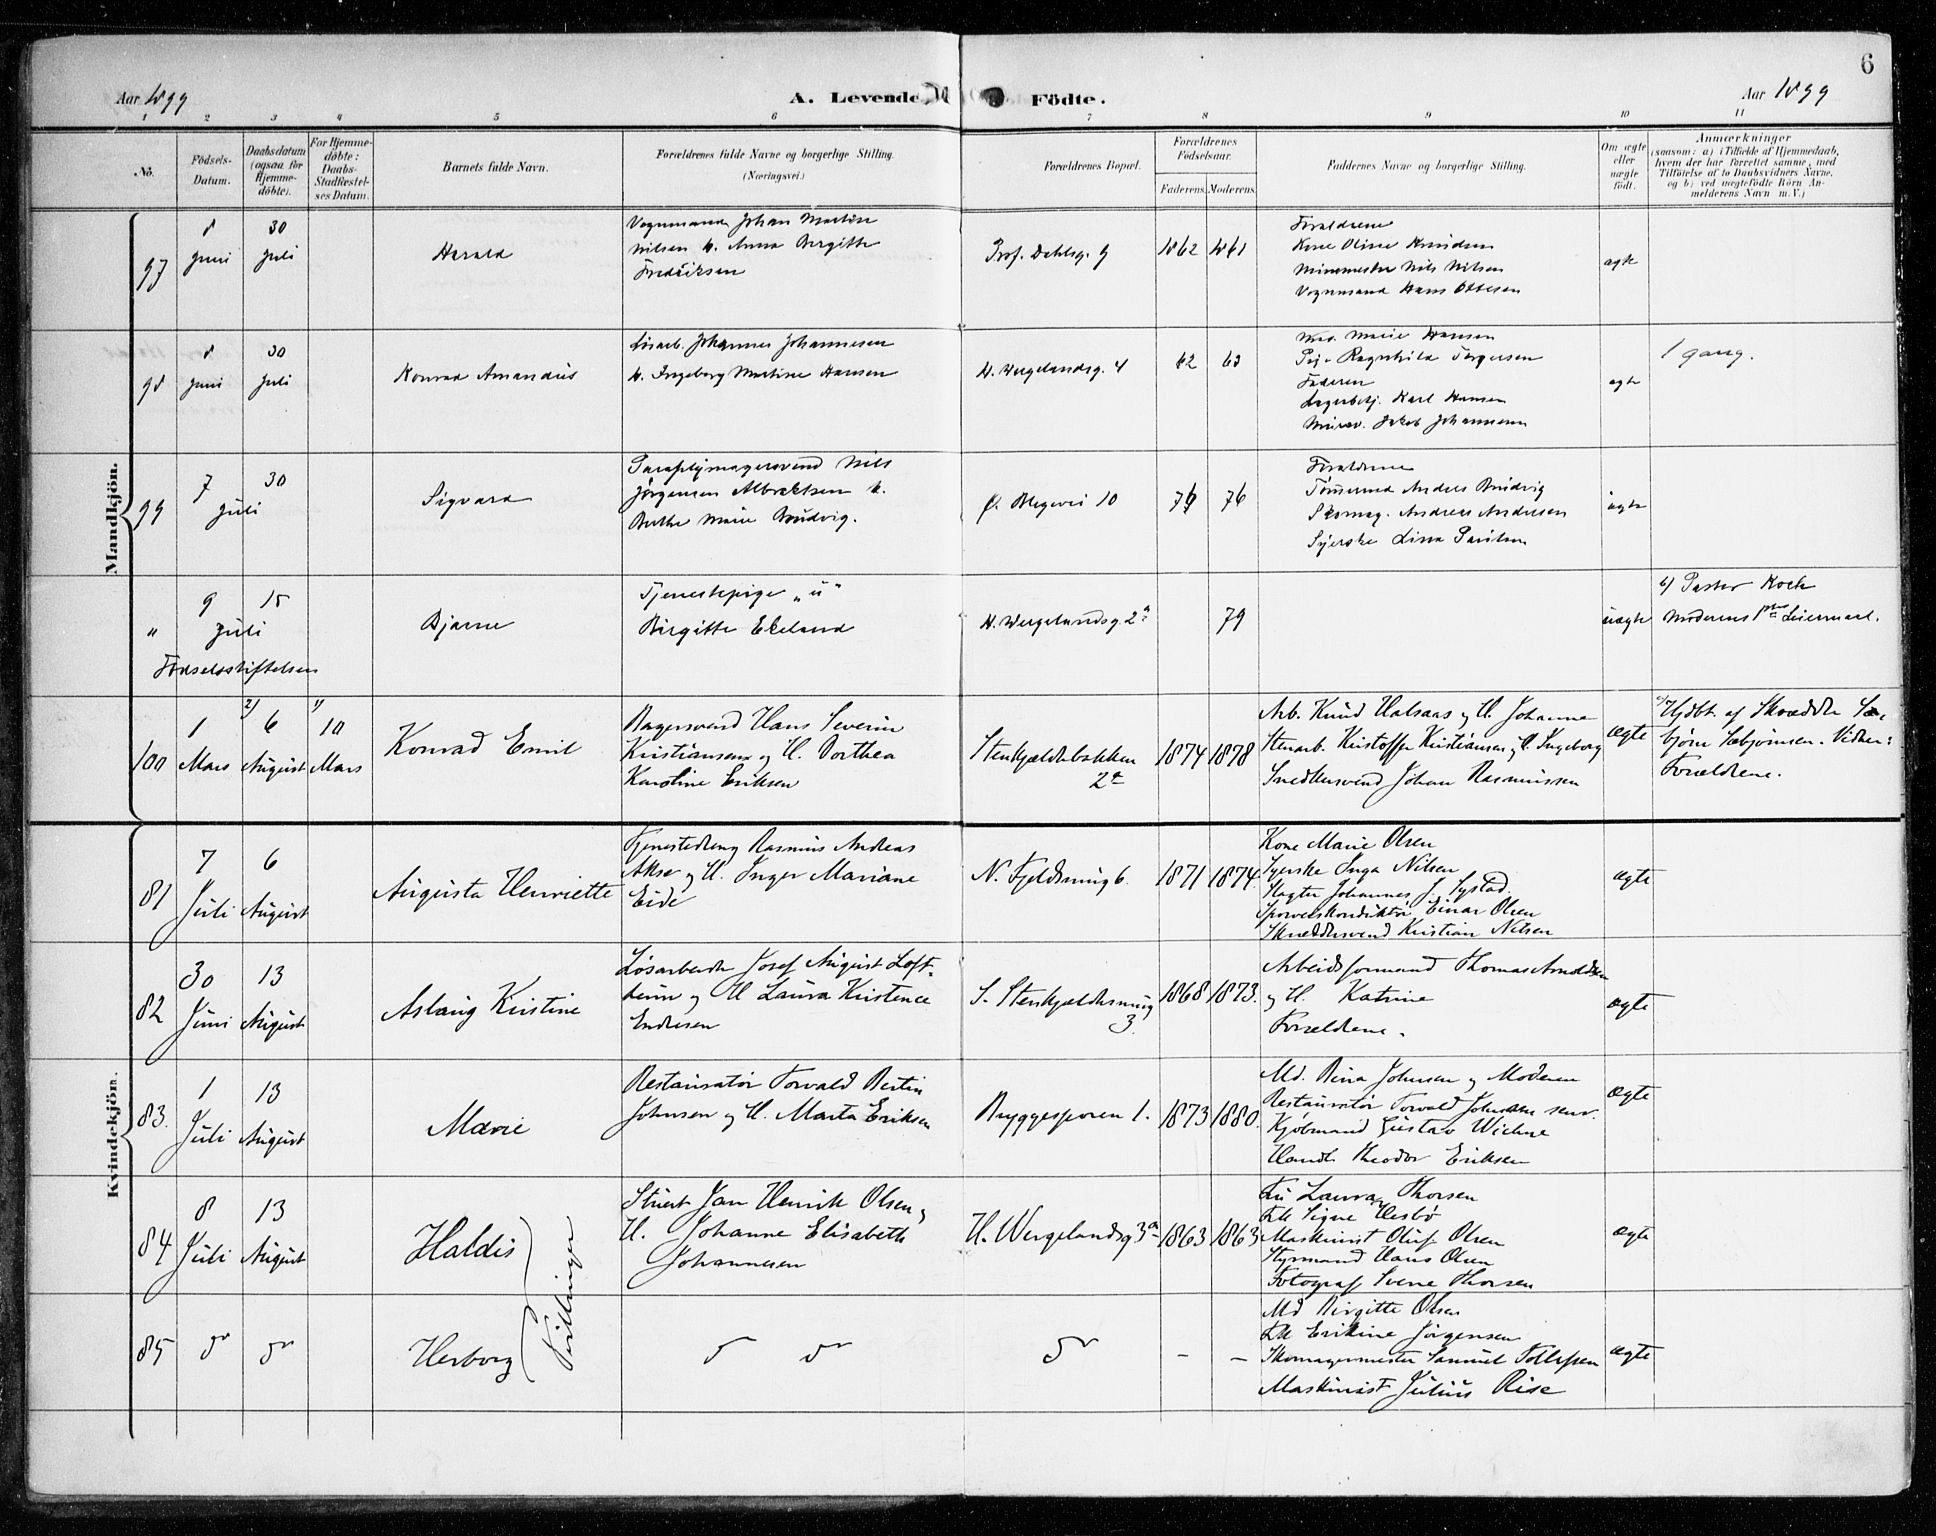 6
Aar 1899
A. Levende Födte.
Aar 1899
1 2 3 4 5 6 7 8 9 10 11
No.
Födsels-
Datum.
Daabsdatum
(ogsaa for
Hjemme-
döbte).
For Hjemme-
döbte:
Daabs-
Stadfæstel-
ses Datum.
Barnets fulde Navn.
Forældrenes fulde Navne og borgerlige Stilling.
(Næringsvei.)
Forældrenes Bopæl.
Forældrenes
Födselsaar.
Faderens. Moderens.
Faddernes Navne og borgerlige Stilling.
Om ægte
eller
uægte
födt.
Anmærkninger
(saasom: a) i Tilfælde af Hjemmedaab,
hvem der har forrettet samme, med
Tilföielse af to Daabsvidners Navne,
og b) ved uægtefödte Börn An-
melderens Navn m. V.)
Mandkjön.
97
8
Juni
30
Juli
Harald
Vognmand Johan Martin
Nilsen & Anna Birgitte
Fredriksen
Prof. Dahlsg. 9
1862 1861
Forældrene
Kone Oline Knudsen
Minemester Nils Nilsen
Vognmand Hans Ottesen
ægte
98
8
Juni
30
Juli
Konrad Amandus
Løsarb. Johannes Johannesen
& Ingeborg Martine Hansen
H. Wergelandsg. 4
62 63
Mad. Marie Hansen
Pige Ragnhild Torgersen
Faderen
Lagerbetj. Karl Hansen
Murer. Jakob Johannesen
ægte
1 gang.
99
7
Juli
30
Sigvard
Paraplymagersvend Nils
Jörgensen Albrektsen &
Berthe Marie Brudvig.
Ø. Blegevei 10
76 76
Forældrene
Tömmermd Anders Brudvig
Skomag. Andreas Andersen
Syerske Lina Paulsen
uægte
"
9
Juli
15
Födselsstiftelsen
Bjarne
Tjenestepige „u"
Birgitte Ekeland
H. Wergelandsg. 2a
79
uægte
b) Pastor Koch
Moderens 1ste Leiermaal.
100
1
Mars
2) 6
August
1) 10
Mars
Konrad Emil
Bagersvend Hans Severin
Kristiansen og H. Dorthea
Karoline Eriksen
Stenkjeldebakken
2a
1874 1878
Arb. Knud Halsaas og H. Johanne
Stenarb. Kristoffer Kristiansen og H. Ingeborg
Snedkersvend Johan Rasmussen
Ægte
a) Hjdbt. af Skrædder Sæ-
björn Sæbjörnsen. Vidner:
Forældrene.
Kvindekjön.
81
7
Juli
6
August
Augusta Henriette
Tjenestedreng Rasmus Andreas
Akse og H. Inger Mariane
Eide
N. Fjeldsmug 6.
1871 1874.
Kone Marie Olsen
Syerske Inga Nilsen
Slagter Johannes J. Systad.
Sporveiskonduktör Einar Olsen
Skræddersvend Kristian Nilsen
Ægte
82
30
Juni
13
August
Aslaug Kristine
Løsarbeider Josef August Loft-
heim og H Laura Kristence
Endresen
S. Stenkjeldersmug
3.
1868 1873.
Arbeidsformand Thomas Arnoldsen
og H. Katrine
Forældrene.
Ægte
83.
1
Juli
13
August
Marie
Restauratör Torvald Bertin
Johnsen og H. Marta Eriksen
Bryggesporen 1.
1873 1880.
Md. Bina Johnsen og Moderen
Restauratör Torvald Johnsen senr.
Kjøbmand Gustav Wichne
Handl. Theodor Eriksen
Ægte
84
8
Juli
13
August
Haldis
Tvillinger
Stuert Jan Henrik Olsen og
H. Johanne Elisabeth
Johannesen
H. Wergelandsg 3a
1863 1863
Fru Laura Thorsen
Frk Signe Hesbö
Maskinist Oluf Olsen
Styrmand Hans Olsen
Fotograf Svene Thorsen
Ægte
85
Herborg
Md Birgitte Olsen
Frk Erikine Jörgensen
Skomagermester Samuel Tollefsen
Maskinist Julius Rise
Ægte